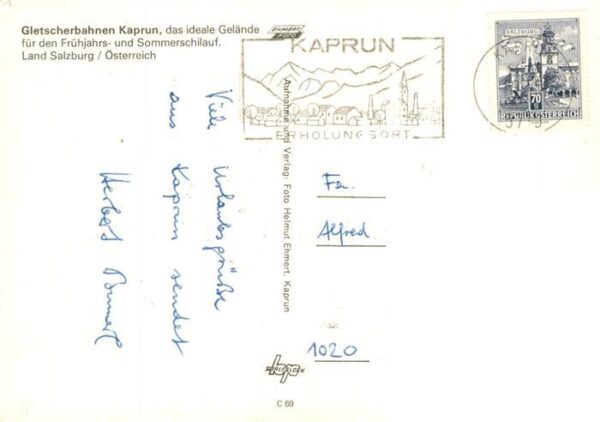 Gletscherbahnen Kaprun, das ideale Gelände
für den Frühjahrs- und Sommerschilauf.
Land Salzburg / Österreich
EHMERT
FOTO
KAPRUN
ERHOLUNGSORT
SALZBURG
70
REPUBLIK ÖSTERREICH
Viele Urlaubsgrüße
aus Kaprun sendet
Herbert
Aufnahme und Verlag: Foto Helmut Ehmert, Kaprun
Fa.
Alfred
1020
C 69